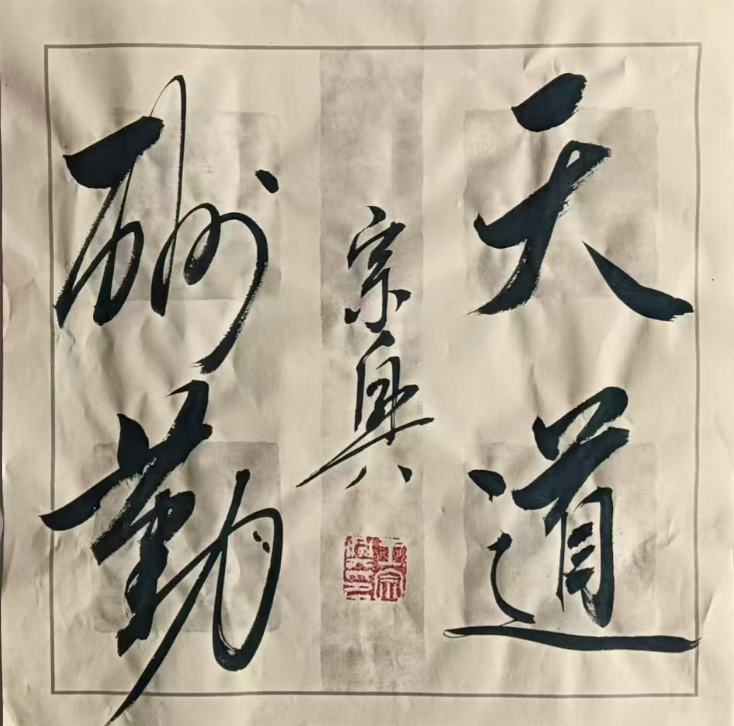 天道
酬勤
宗興